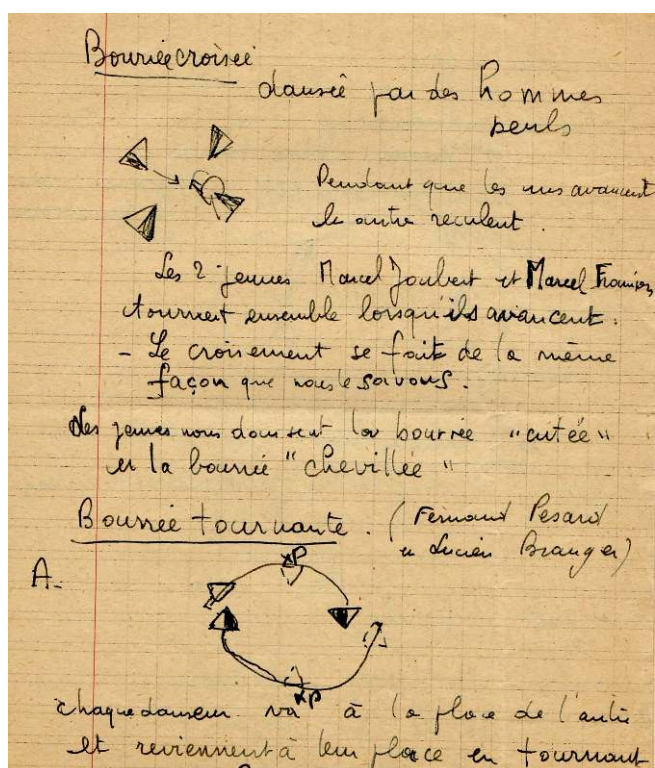 Bourrée croisée
dansée par des hommes
seuls
Pendant que les uns avancent
les autre reculent.
Les 2 jeunes Marcel Joubert et Marcel
tournent ensemble lorsqu'ils avancent.
- Le croisement se fait de la même
façon que nous le savons.
Les jeunes nous dansent la bourrée "cutée"
et la bourrée "chevillée"
Bourrée tournante. (Fernand Pesard
et Lucien Branger)
A-
xP
xP
chaque danseur va à la place de l'autre
et reviennent à leur place en tournant